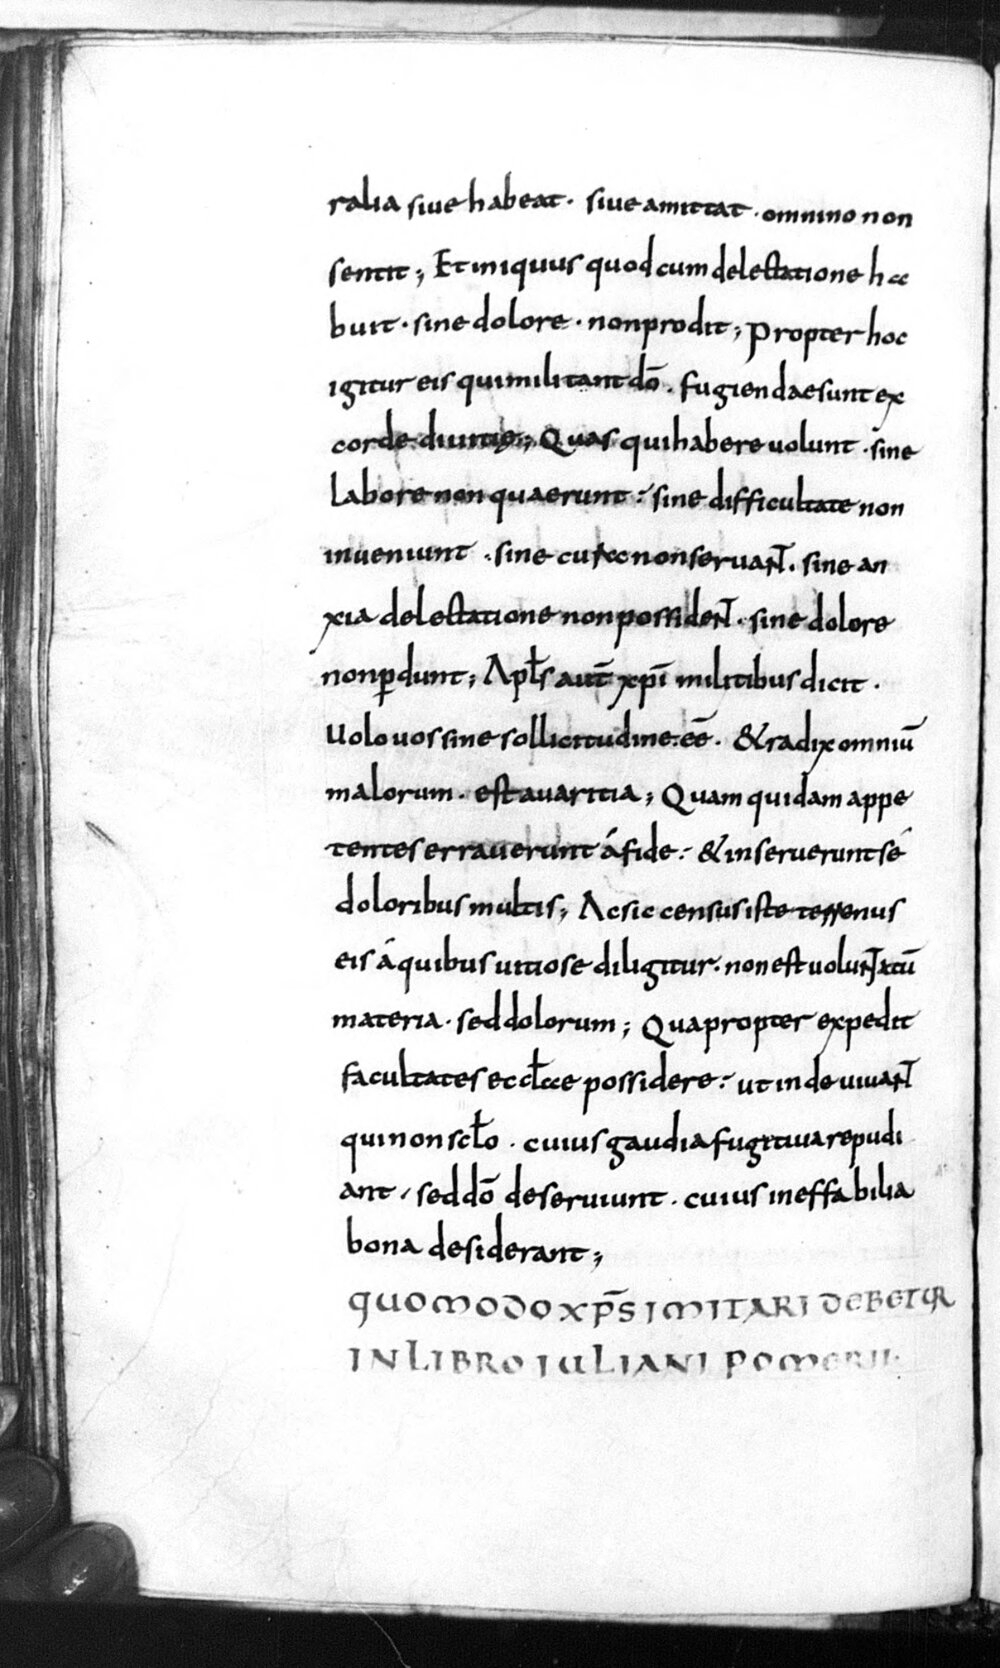 ralia siue habeat · siue amittat · omnino non
sentit ; Et iniquus quod cum delectatione ha
buit · sine dolore · non prodit ; Propter hoc
igitur eis qui militant dō . fugiendae sunt ex
corde diuitię ; Quas qui habere uolunt · sine
labore non quaerunt : sine difficultate non
inueniunt · sine cura non seruanṫ . sine an
xia delectatione non possidenṫ · sine dolore
non ꝑdunt ; Apłs aut̄ xp̄i militibus dicit .
Uolo uos sine sollicitudine ēē . & radix omniū
malorum . est auaritia ; Quam quidam appe
tentes errauerunt á fide : & inseruerunt sé
doloribus multis ; Ac sic census iste terrenus
eis á quibus uitiose diligitur . non est voluntatū
materia · sed dolorum ; Quapropter expedit
facultates eccłae possidere : ut inde uiuant
qui non scło . cuius gaudia fugitiua repudi
ant , sed dō deseruiunt . cuius ineffabilia
bona desiderant ;
QUOMODO XP̄S IMITARI DEBETUR
IN LIBRO IULIANI POMERII